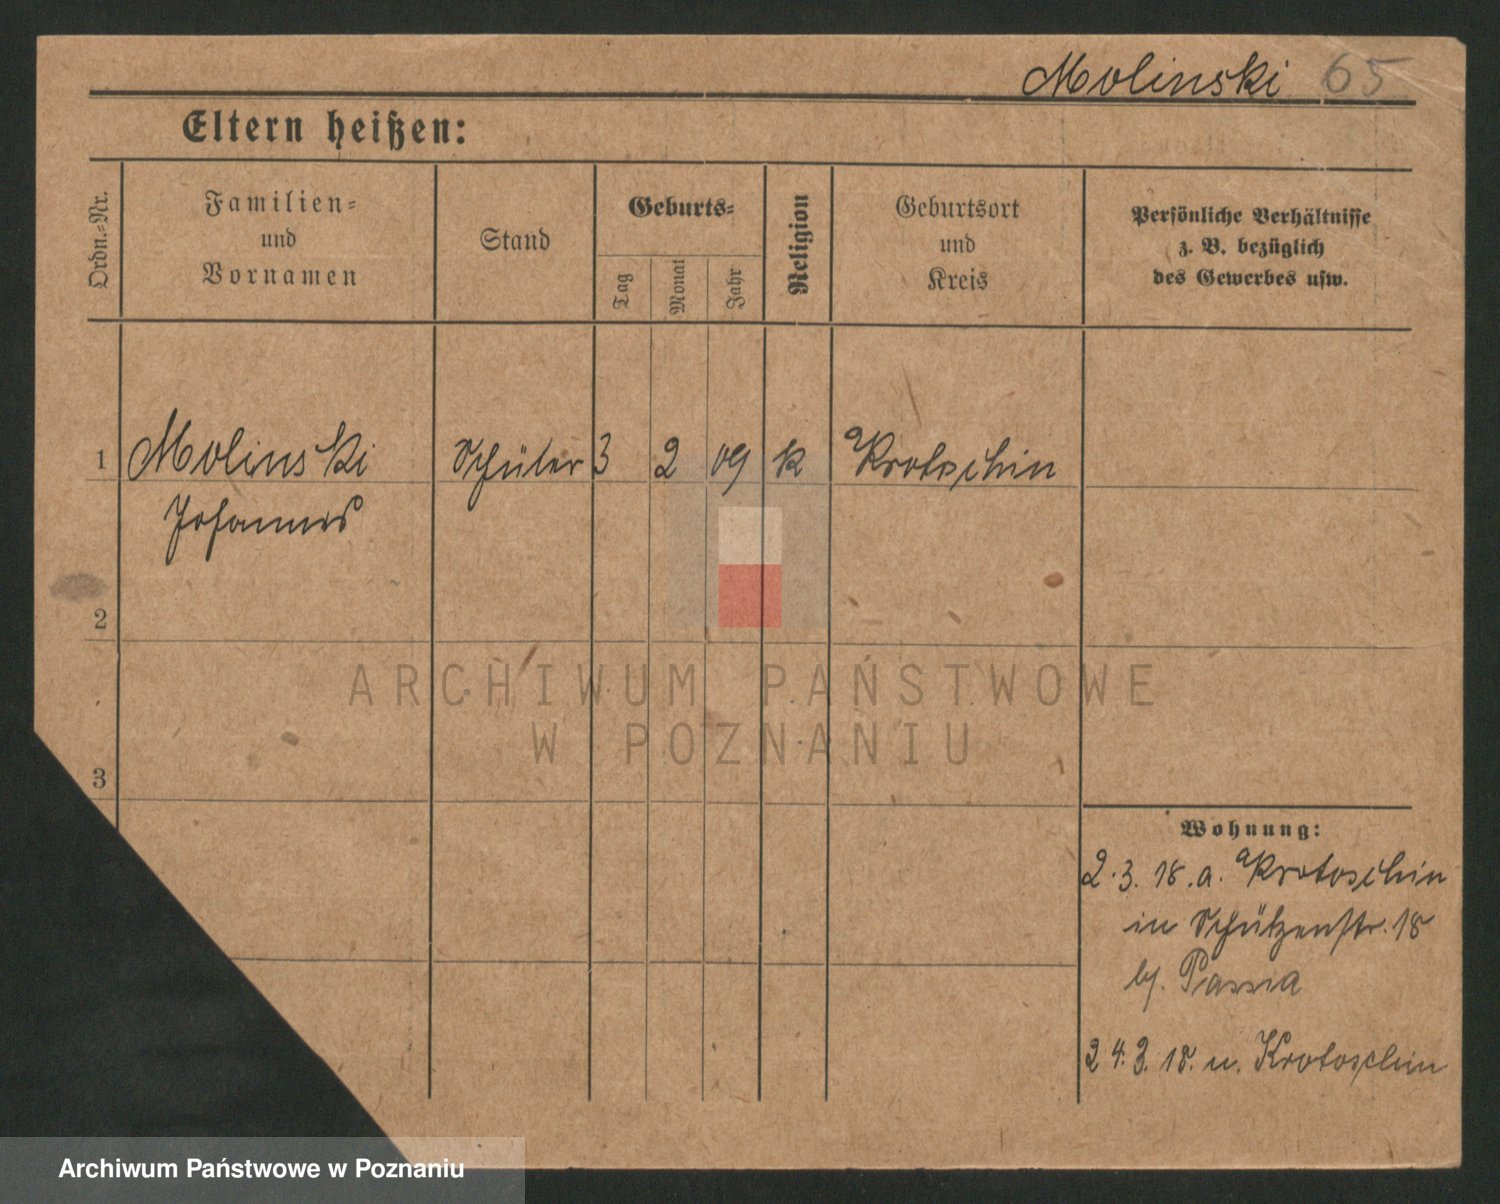 Molinski 65
Eltern heißen:
Ordn.-Nr.
Familien-
und
Vornamen
Stand
Geburts-
Tag
Monat
Jahr
Religion
Geburtsort
und
Kreis
Persönliche Verhältnisse
z. B. bezüglich
des Gewerbes usw.
1 Molinski Schüler 3 2 09 k Krotoschin
Johannes
2
ARCHIWUM PAŃSTWOWE
W POZNANIU
3
Wohnung:
2.3.18.a. Krotoschin
in Schützenstr. 18
bj. Passia
24.3.18. n. Krotoschin
Archiwum Państwowe w Poznaniu